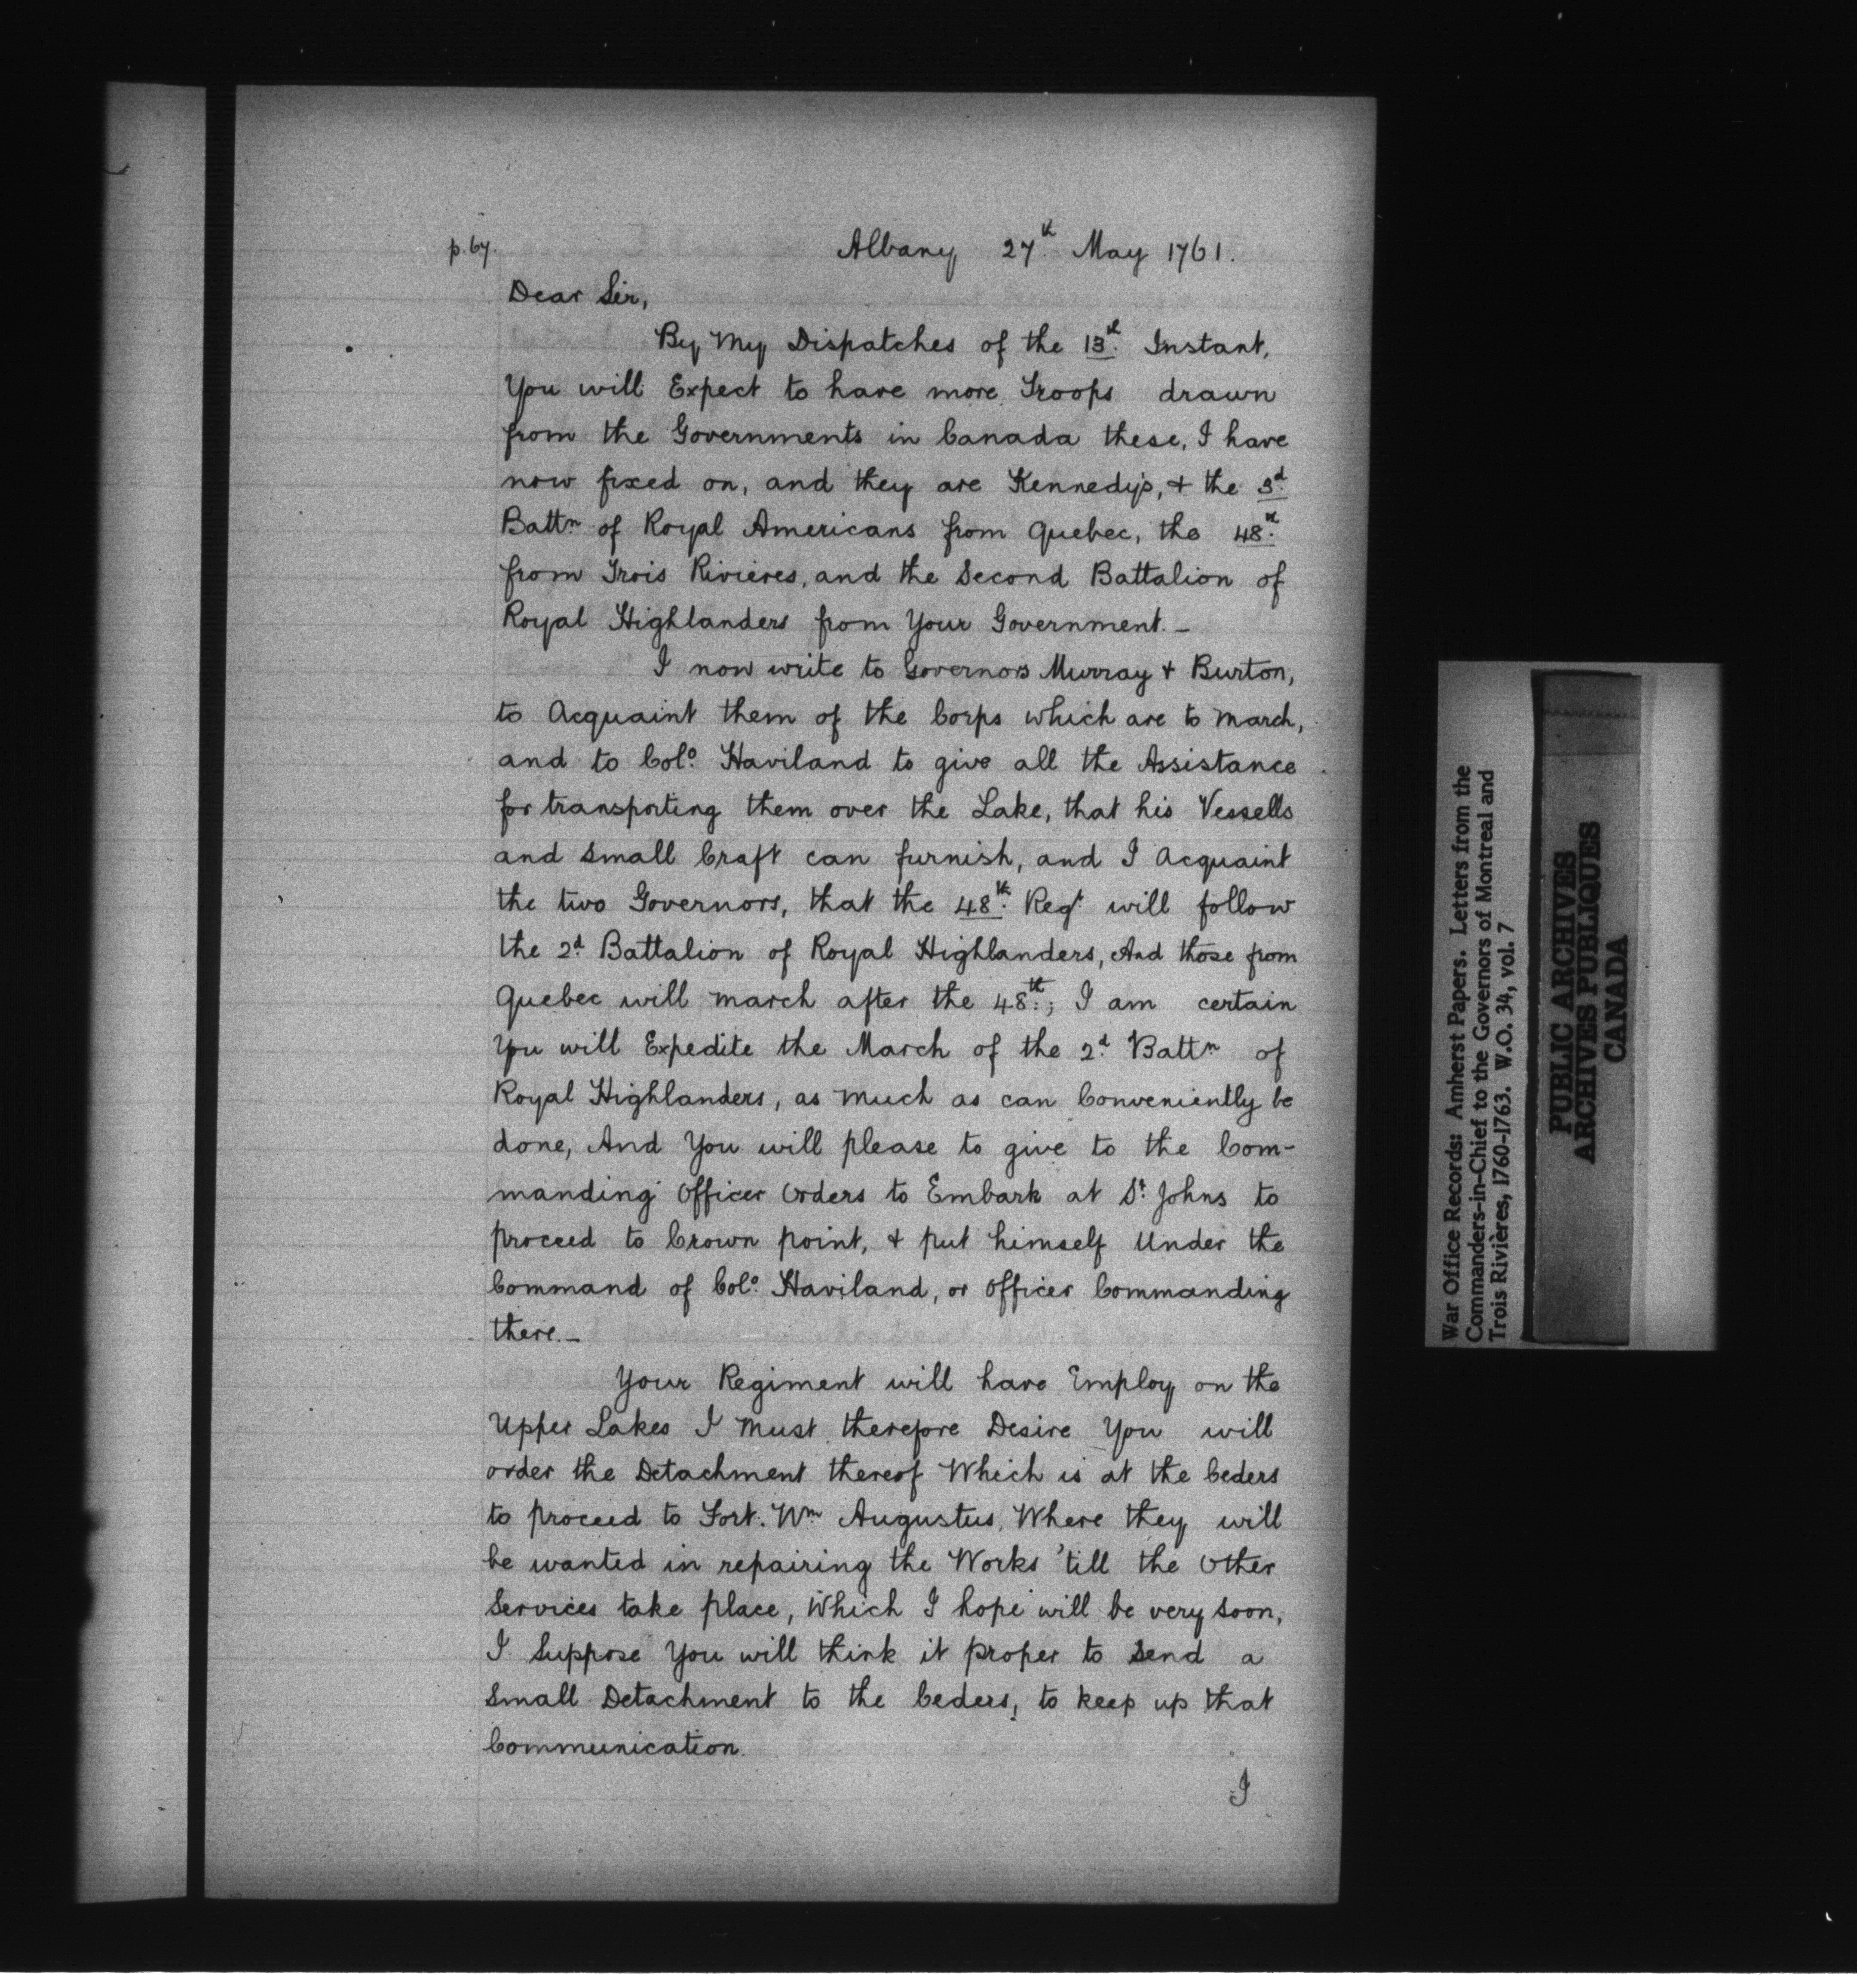 p. 67.
Albany 27th May 1761.
Dear Sir,
By My Dispatches of the 13th Instant,
You will Expect to have more Troops drawn
from the Governments in Canada these, I have
now fixed on, and they are Kennedy's, & the 3d
Battn of Royal Americans from Quebec, the 48th
from Trois Rivieres, and the Second Battalion of
Royal Highlanders from Your Government. -
I now write to Governors Murray & Burton,
to Acquaint them of the Corps which are to march,
and to Colo. Haviland to give all the Assistance
for transporting them over the Lake, that his Vessells
and Small Craft can furnish, and I Acquaint
the two Governors, that the 48th Regt will follow
the 2d Battalion of Royal Highlanders, And those from
Quebec will march after the 48th; I am certain
You will Expedite the March of the 2d Battn of
Royal Highlanders, as much as can Conveniently be
done, And You will please to give to the Com-
manding Officer Orders to Embark at St Johns to
proceed to Crown point, & put himself Under the
Command of Colo. Haviland, or Officer Commanding
there. -
Your Regiment will have Employ on the
Upper Lakes I Must therefore Desire You will
order the Detachment thereof Which is at the Ceders
to proceed to Fort. Wm Augustus, Where they will
be wanted in repairing the Works 'till the Other
Services take place, Which I hope will be very soon,
I Suppose You will think it proper to Send a
Small Detachment to the Ceders, to keep up that
Communication.
I
War Office Records: Amherst Papers. Letters from the
Commanders-in-Chief to the Governors of Montreal and
Trois Rivières, 1760-1763. W.O. 34, vol. 7
PUBLIC ARCHIVES
ARCHIVES PUBLIQUES
CANADA